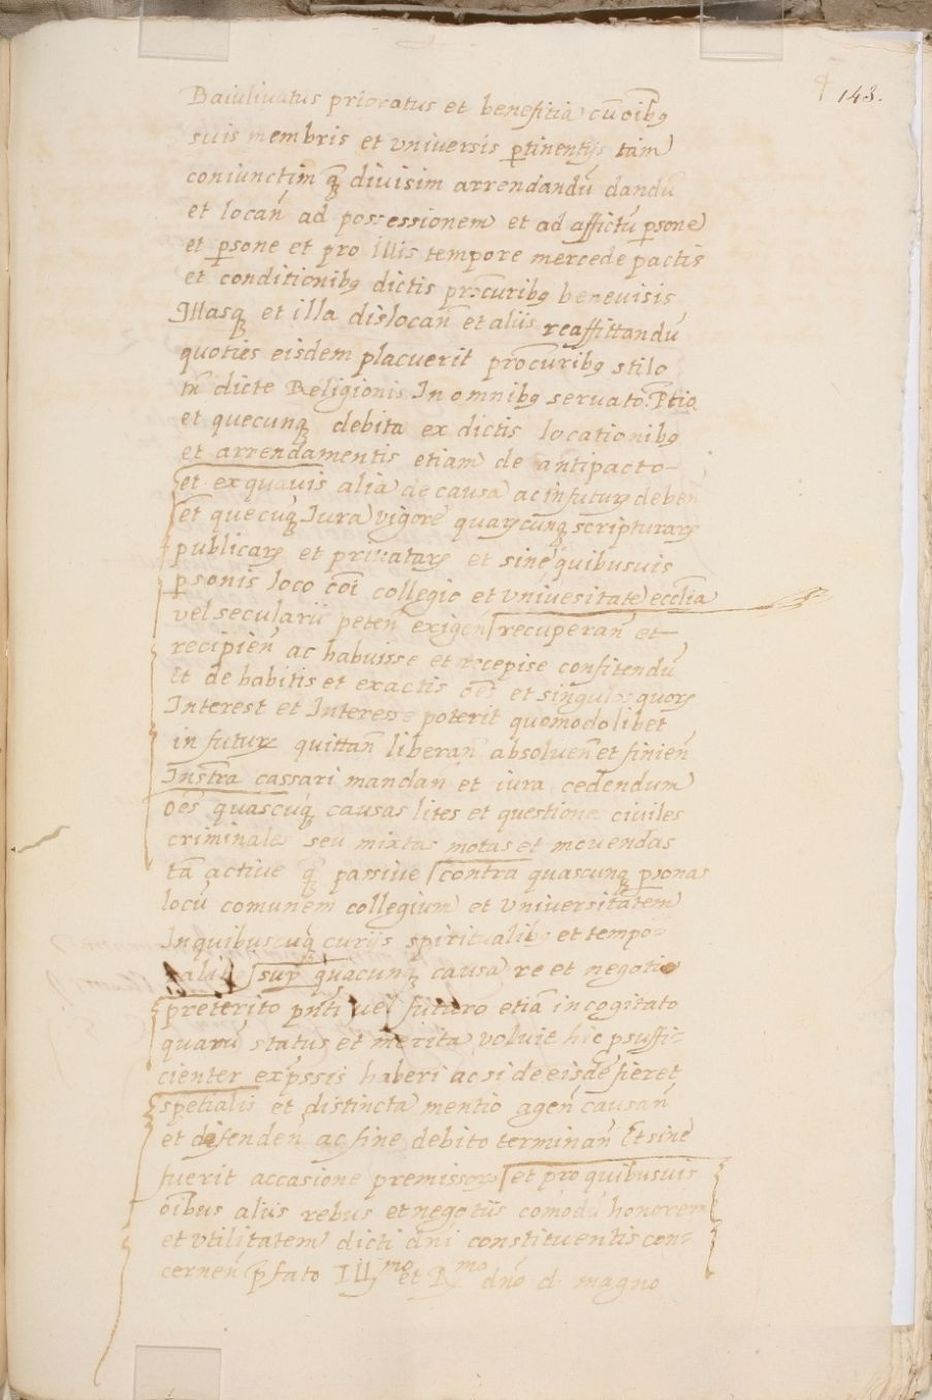 143.
Baiulivatus prioratus et benefitia cū oībꝫ
suis membris et universis ꝑtinentijs tam
coniunctim qꝫ divisim arrendandū dandū
et locan̄ ad possessionem et ad affictū ꝑsone
et ꝑsone et pro illis tempore mercede pactis
et conditionibꝫ dictis procuribꝫ benevisis
Illasqꝫ et illa dislocan̄ et aliis reaffittandū
quoties eisdem placuerit procuribꝫ stilo
tn̄ dicte Religionis In omnibꝫ servato.
et quecunqꝫ debita ex dictis locationibꝫ
et arrendamentis etiam de antipacto
et ex quavis alia de causa ac in futurꝫ deben̄
et quecūqꝫ Iura vigore quarꝫcunqꝫ scripturarꝫ
publicarꝫ et privatarꝫ et sine quibusvis
ꝑsonis loco cōi collegio et univesitate eccl̄ia
vel secularii peten̄ exigen̄ recuperan̄ et
recipien̄ ac habuisse et recepise confitendū
Et de habitis et exactis oēs et singulos quorꝫ
Interest et Interesse poterit quomodolibet
in futurꝫ quittan̄ liberan̄ absolven̄ et finien̄
Instr̄a cassari mandan̄ et iura cedendum
oēs quascūqꝫ causas lites et questione civiles
criminales seu mixtas motas et movendas
tā active qꝫ passive contra quascunqꝫ ꝑsonas
locū comunem collegium et universitatem
In quibuscūqꝫ curijs spiritualibꝫ et tempo=
ralibꝫ suꝑ quacunqꝫ causa re et negotio
preterito pn̄ti vel futuro etiā incogitato
quarū status et merita voluit hic ꝑsuffi=
cienter exp̄ssis haberi ac si de eisdē fieret
spetialis et distincta mentio agen̄ causan̄
et defenden̄ ac fine debito terminan̄ Et sine
fuerit accasione premissorꝫ et pro quibusvis
oībus aliis rebus et negotiis comodū honorem
et utilitatem dicti dn̄i constituentis con=
cernen̄ p̄fato Ill^mo et R^mo dn̄o d. magno